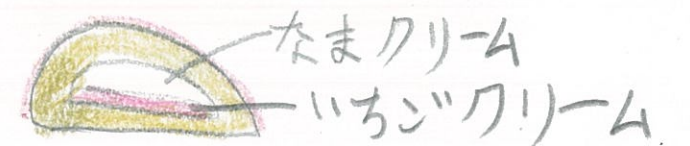 なまクリーム
いちごクリーム